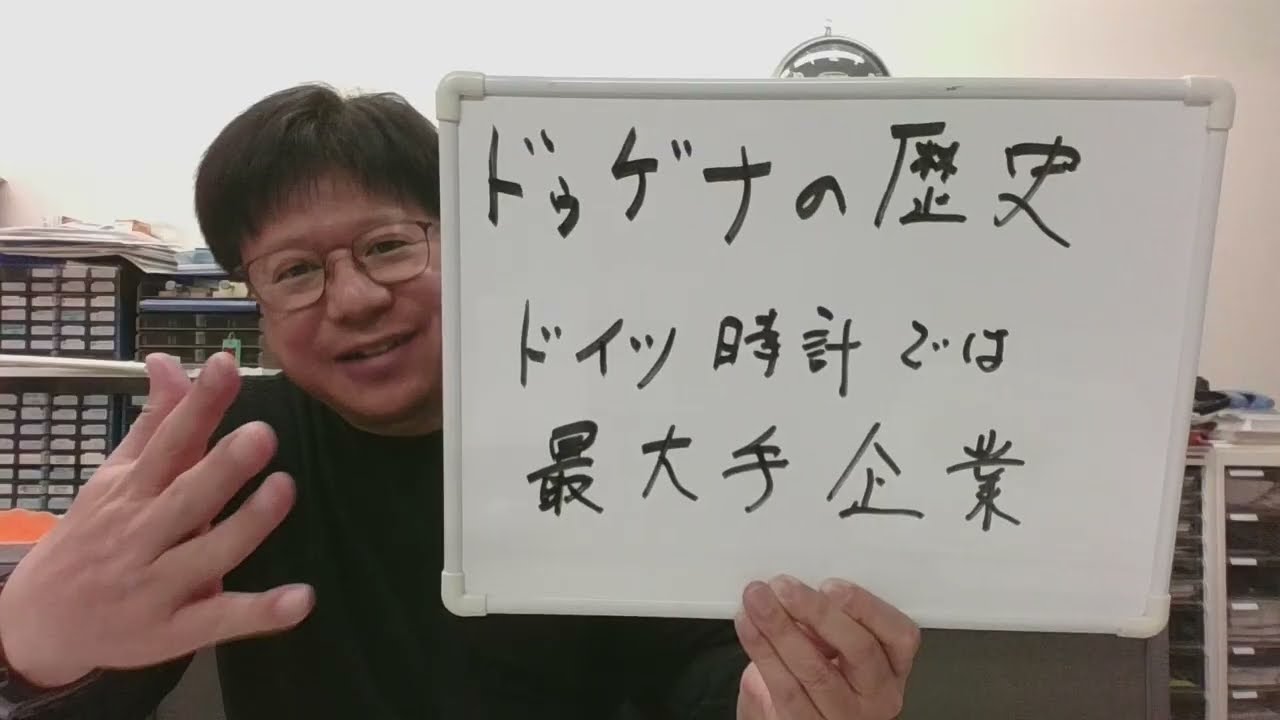 ドゥゲナの歴史
ドイツ時計では
最大手企業